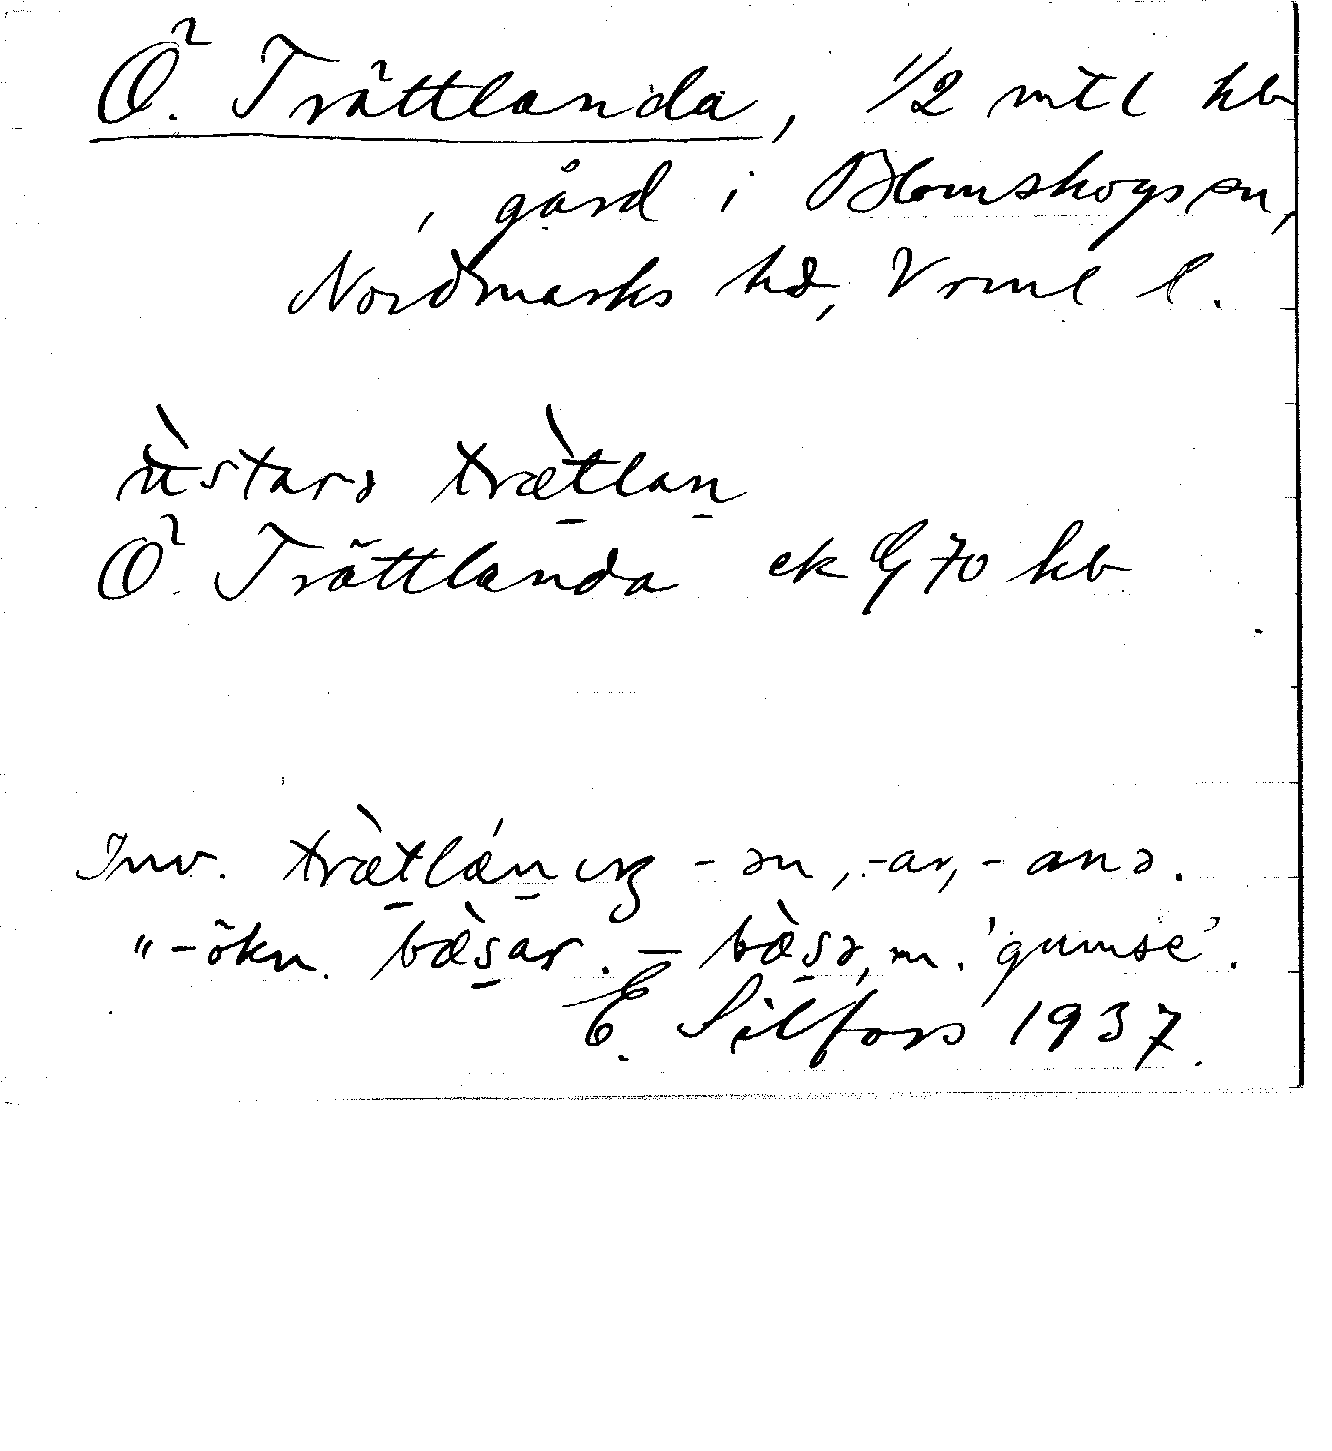 Ö. Trättlanda, 1/2 mtl kb
, gård i Blomskogs sn,
Nordmarks hd, Vrml l.
ùstarə træ̀tlan
Ö. Trättlanda ek G 70 kb
Inv. træ̀tlánıŋ -ən, -ar, -anə.
" -ökn. bæ̀sar. – bæ̀sə, m. 'gumse'.
E. Silfors 1937.